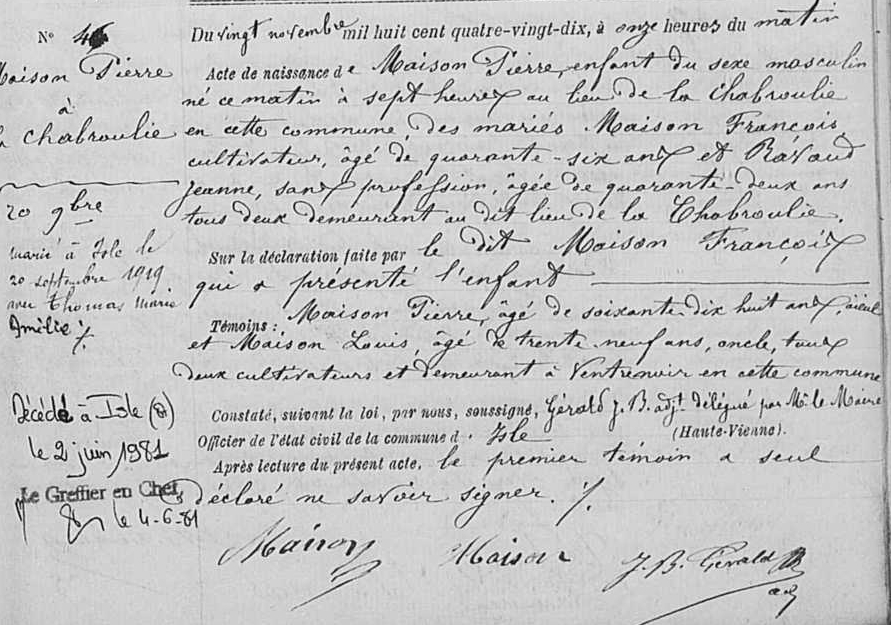 N° 46
Maison Pierre
à
la Chabroulie
20 9bre
marié à Isle le
20 septembre 1919
avec Thomas Marie
Amélie ./.
Décédé à Isle (87)
le 2 juin 1981
Le Greffier en Chef,
le 4-6-81
Du vingt novembre mil huit cent quatre-vingt-dix, à onze heures du matin
Acte de naissance de Maison Pierre, enfant du sexe masculin
né ce matin à sept heures au lieu de la Chabroulie
en cette commune, des mariés Maison François,
cultivateur, âgé de quarante-six ans et Ravaud
Jeanne, sans profession, âgée de quarante-deux ans
tous deux demeurant au dit lieu de la Chabroulie.
Sur la déclaration faite par le dit Maison François
qui a présenté l'enfant
Témoins : Maison Pierre, âgé de soixante-dix huit ans, aïeul
et Maison Louis, âgé de trente-neuf ans, oncle, tous
deux cultivateurs et demeurant à Ventrenoir en cette commune
Constaté, suivant la loi, par nous, soussigné, Gérald J. B. adjt délégué par Mr le Maire
Officier de l'état civil de la commune d' Isle (Haute-Vienne).
Après lecture du présent acte, le premier témoin a seul
déclaré ne savoir signer. ./.
Maison Maison J. B. Gérald
adj